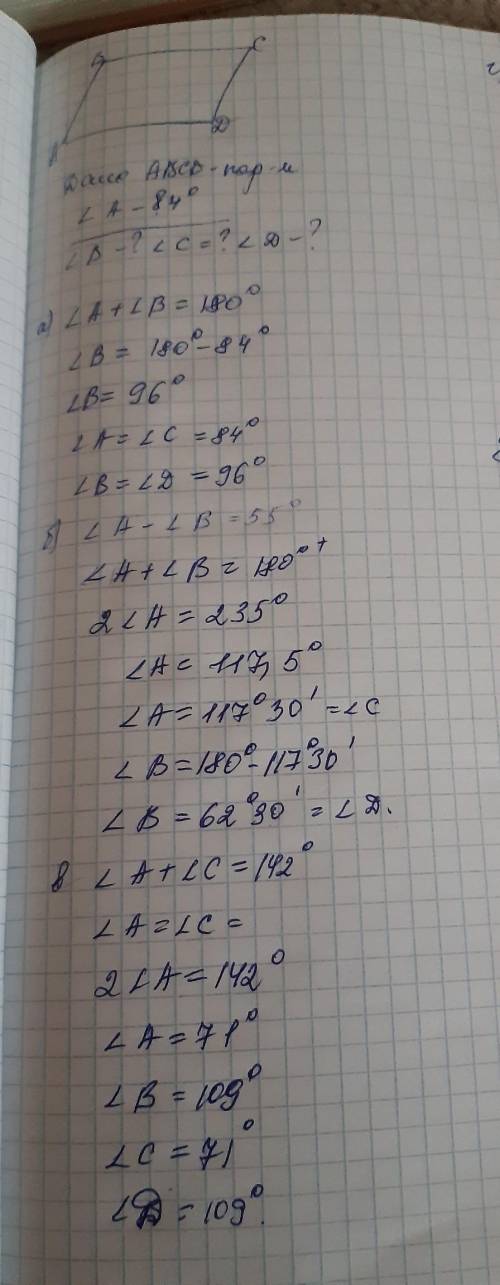 C
D
Дано ABCD - пар-м
∠A - 84°
∠B - ? ∠C = ? ∠D - ?
а) ∠A + ∠B = 180°
∠B = 180° - 84°
∠B = 96°
∠A = ∠C = 84°
∠B = ∠D = 96°
б) ∠A - ∠B = 55°
∠A + ∠B = 180° +
2∠A = 235°
∠A = 117,5°
∠A = 117°30' = ∠C
∠B = 180° - 117°30'
∠B = 62°30' = ∠D.
в ∠A + ∠C = 142°
∠A = ∠C =
2∠A = 142°
∠A = 71°
∠B = 109°
∠C = 71°
∠D = 109°.